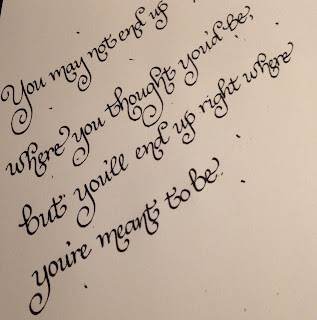 You may not end up
where you thought you'd be,
but you'll end up right where
you're meant to be.